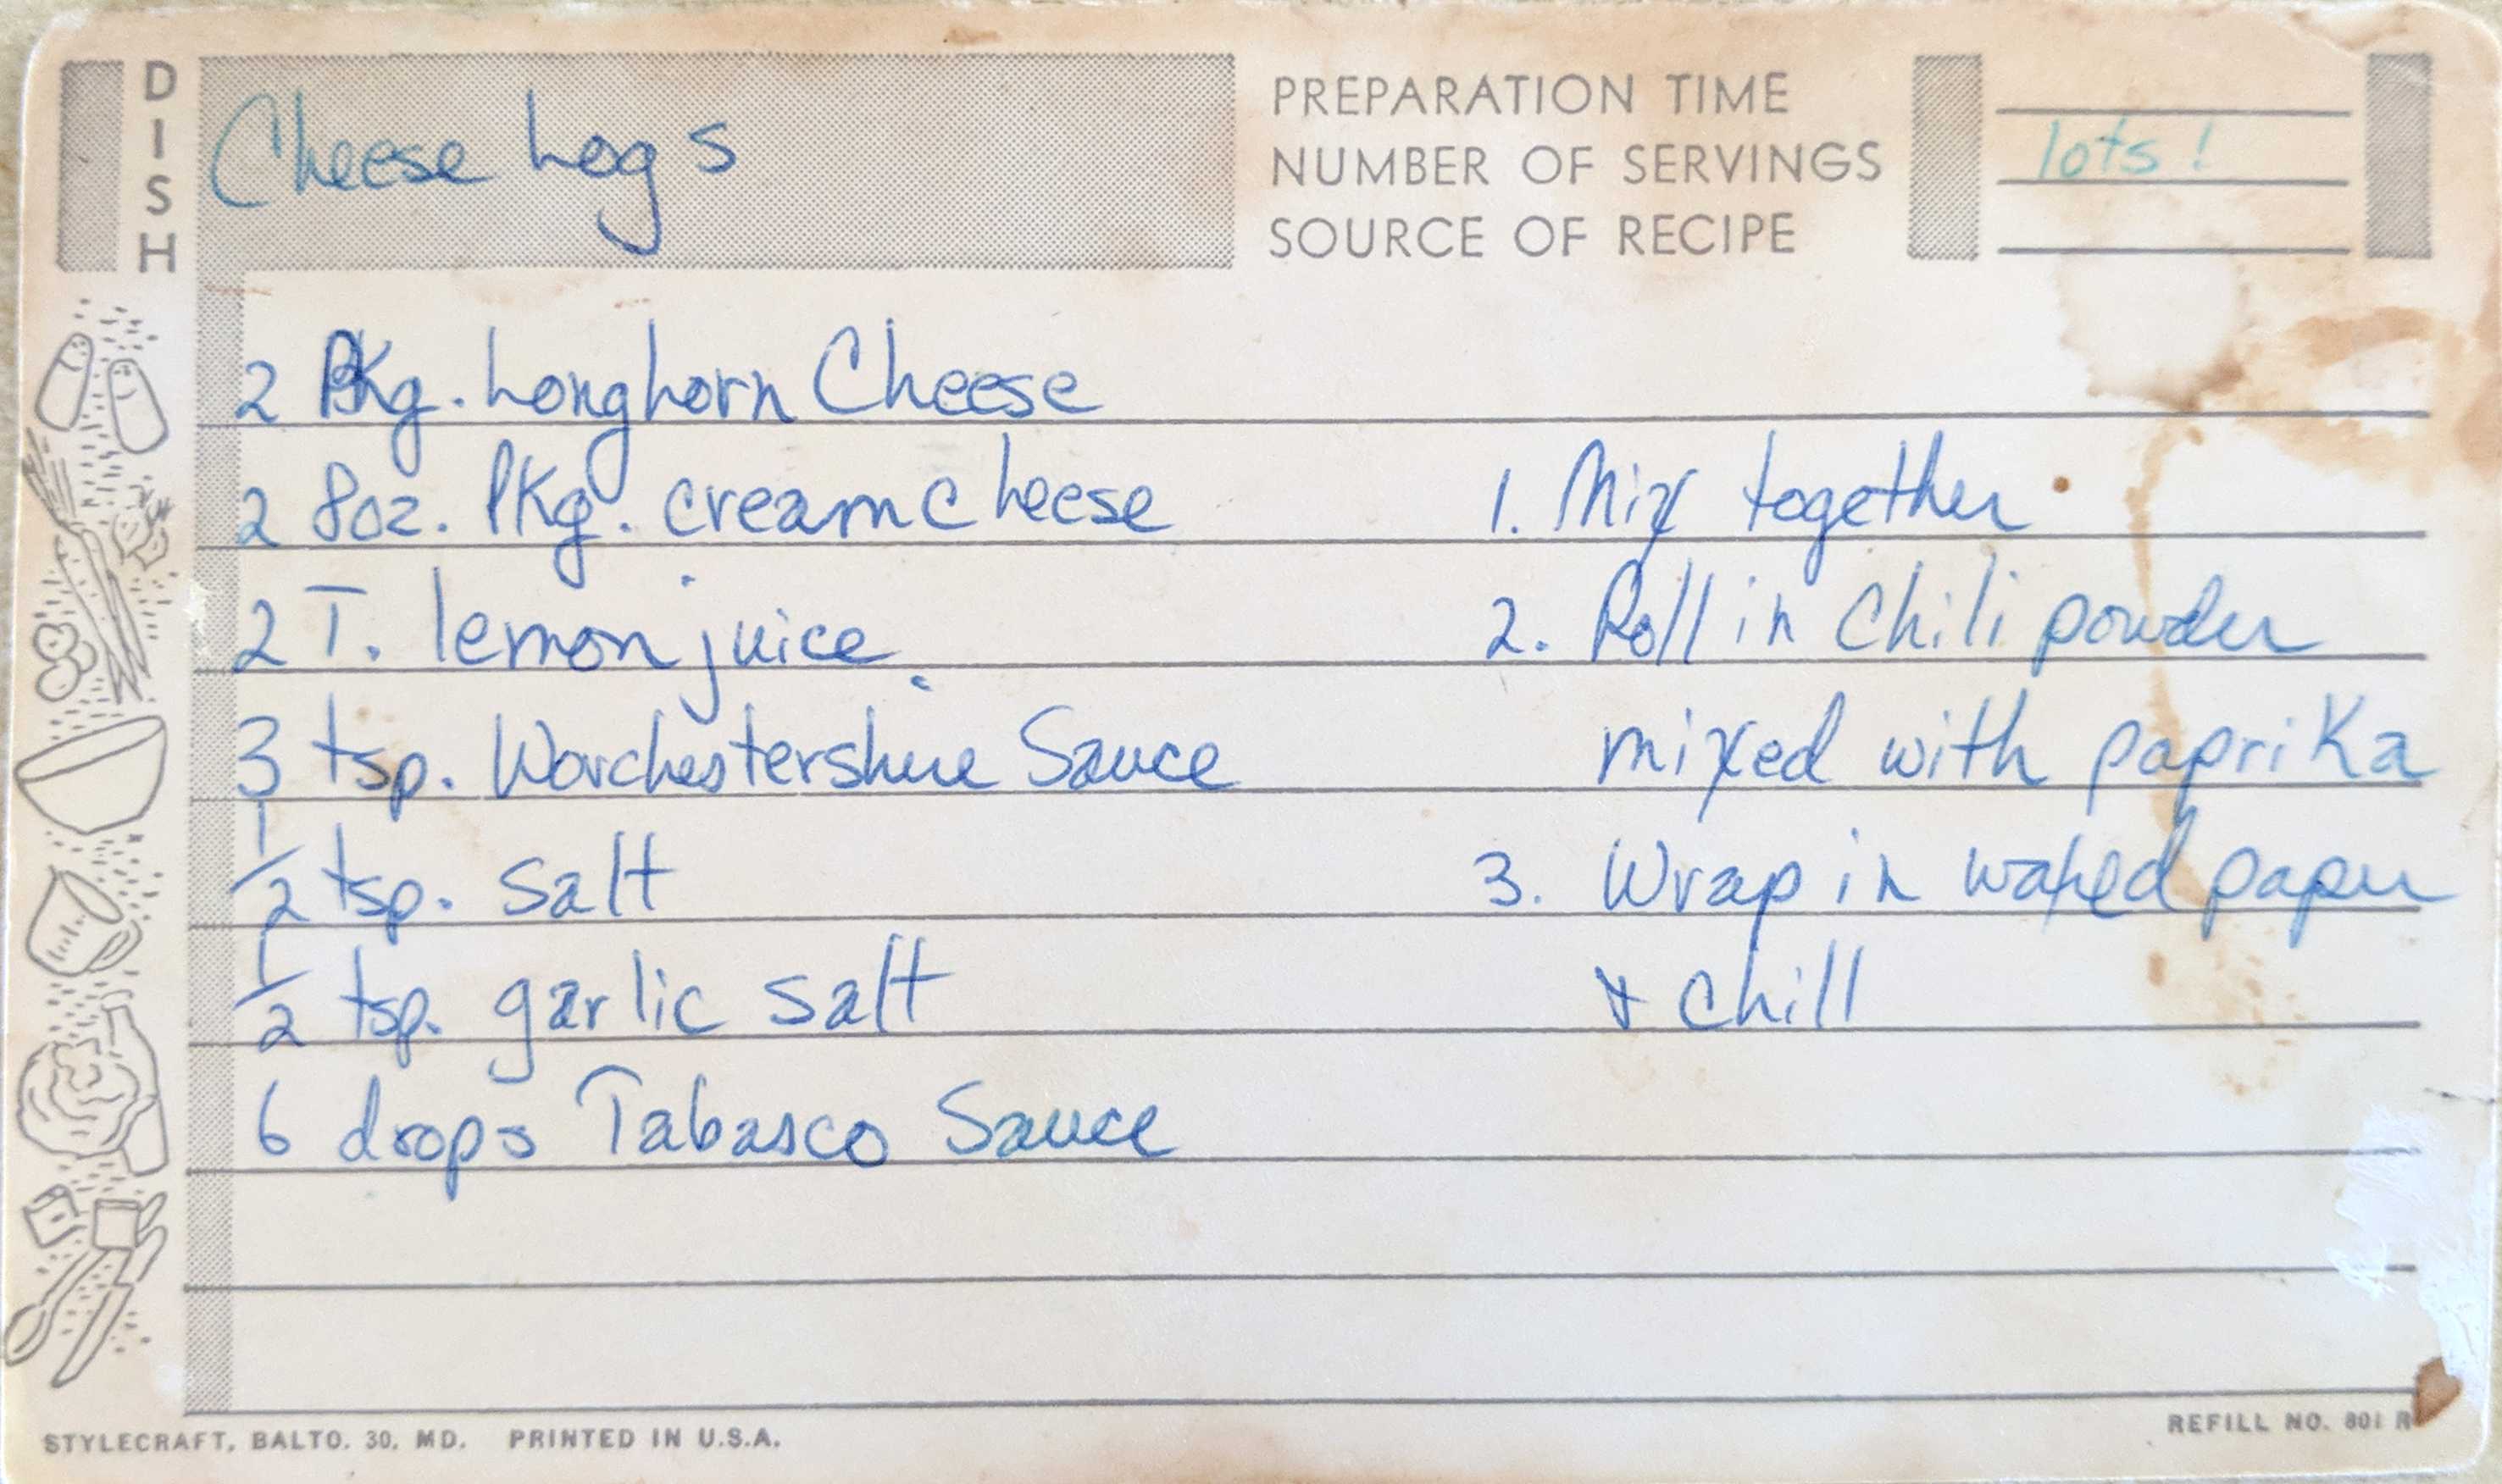 DISH
Cheese Logs
PREPARATION TIME
NUMBER OF SERVINGS lots!
SOURCE OF RECIPE
2 Pkg. Longhorn Cheese
2 8oz. Pkg. cream cheese
2 T. lemon juice
3 tsp. Worchestershire Sauce
1/2 tsp. salt
1/2 tsp. garlic salt
6 drops Tabasco Sauce
1. Mix together
2. Roll in Chili powder
mixed with paprika
3. Wrap in waxed paper
& chill
STYLECRAFT, BALTO. 30, MD. PRINTED IN U.S.A.
REFILL NO. 801 R